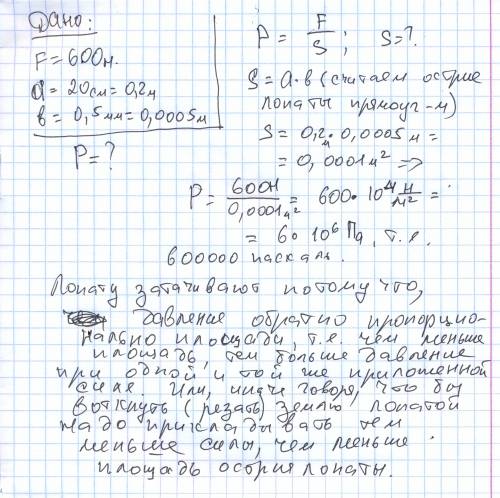 Дано:
F = 600н.
a = 20см = 0,2м
в = 0,5мм = 0,0005м
P = ?
P = F/S ; S = ?
S = a·в (считаем острие
лопаты прямоуг-м)
S = 0,2м · 0,0005м =
= 0,0001м² =>
P = 600Н/0,0001м² = 600·10⁴ Н/м² =
= 6·10⁶ Па, т.е.
600000 паскаль.
Лопату затачивают потому что,
давление обратно пропорцио-
нально площади, т.е. чем меньше
площадь, тем больше давление
при одной и той же приложенной
силе. Или, иначе говоря, что бы
воткнуть (резать) землю лопатой
надо прикладывать тем
меньше силы, чем меньше
площадь острия лопаты.